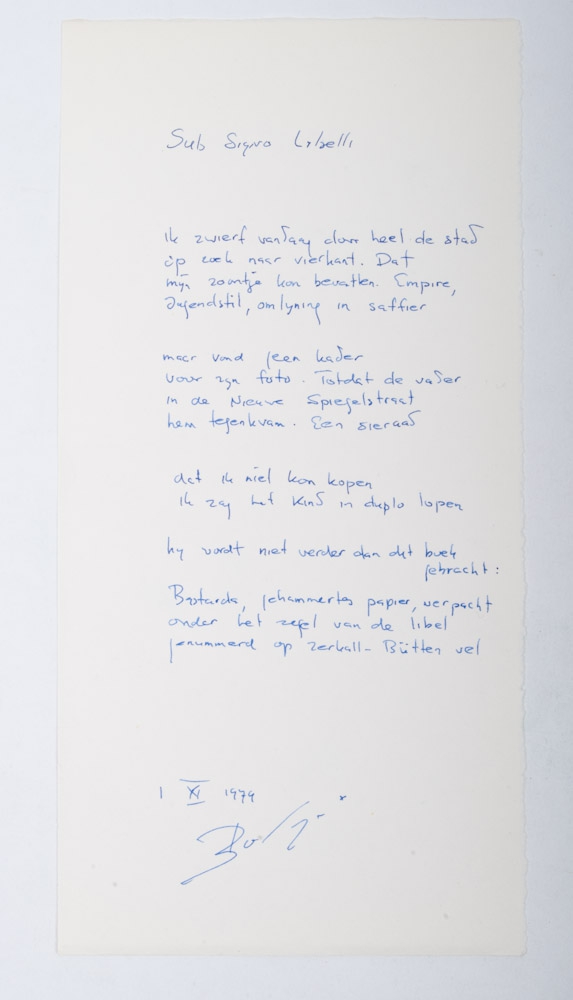 Sub Signo Libelli
ik zwierf vandaag door heel de stad
op zoek naar vierkant. Dat
mijn zoontje kon bevatten. Empire,
Jugendstil, omlijning in saffier
maar vond geen kader
voor zijn foto. Totdat de vader
in de Nieuwe Spiegelstraat
hem tegenkwam. Een sieraad
dat ik niet kon kopen
ik zag het kind in duplo lopen
hij wordt niet verder dan dit boek
gebracht:
Bastarda, gehammertes papier, verpacht
onder het zegel van de libel
genummerd op zerkall-Bütten vel
1 XI 1979